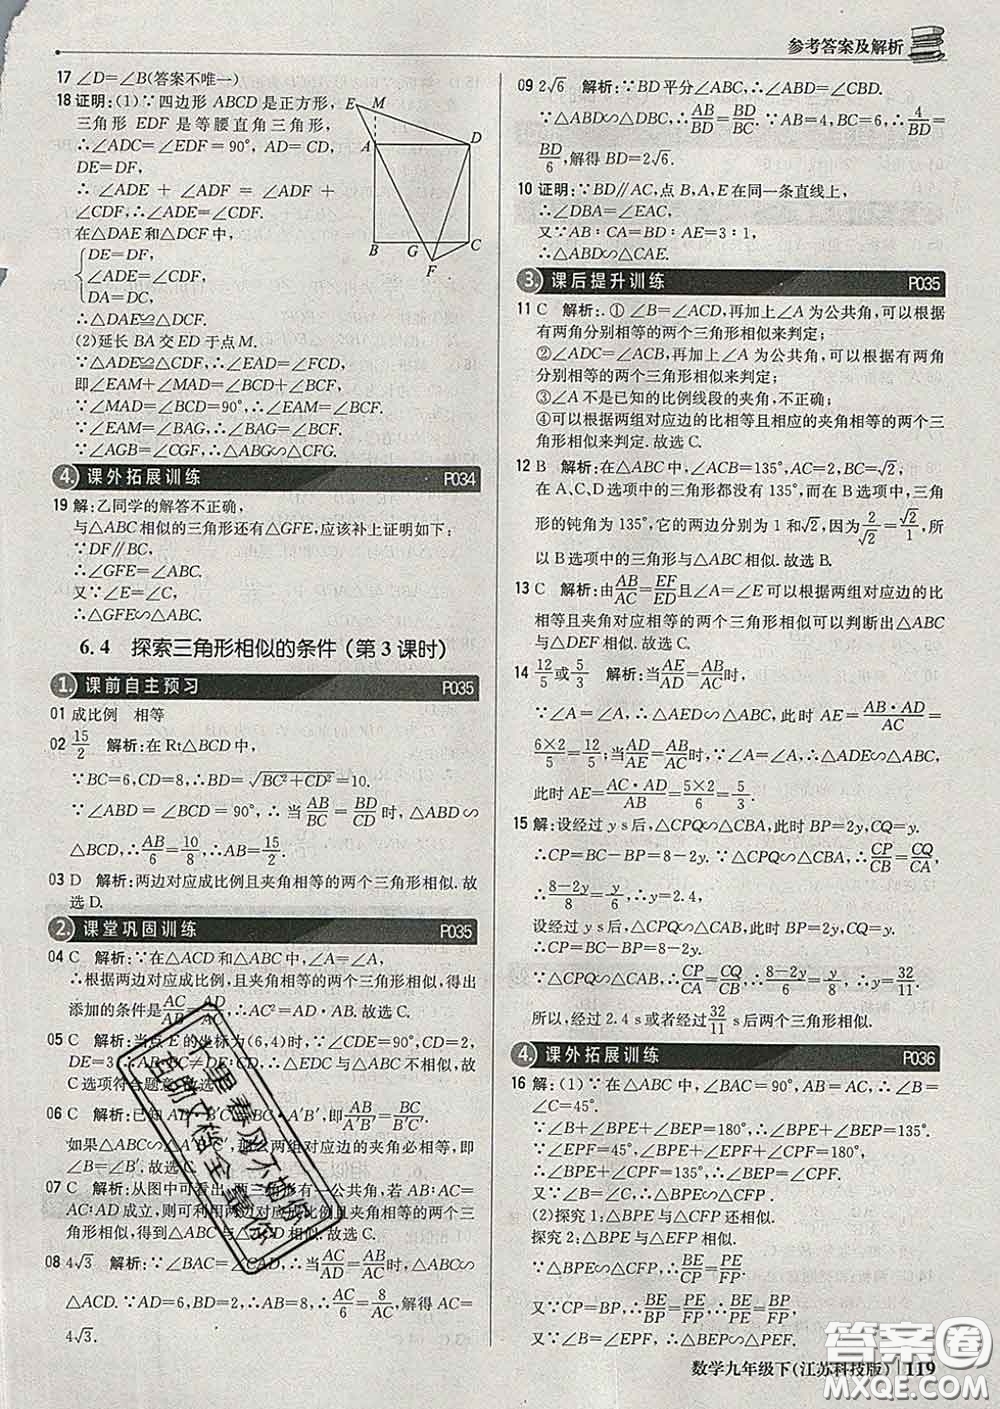 参考答案及解析
17 ∠D=∠B(答案不唯一)
18 证明:(1)∵四边形 ABCD 是正方形,
三角形 EDF 是等腰直角三角形,
∴∠ADC=∠EDF=90°, AD=CD,
DE=DF,
∴∠ADE+∠ADF=∠ADF+
∠CDF,∴∠ADE=∠CDF.
在△DAE和△DCF中,
DE=DF,
∠ADE=∠CDF,
DA=DC,
∴△DAE≌△DCF.
(2)延长 BA 交 ED 于点 M.
∵△ADE≌△CDF,∴∠EAD=∠FCD,
即∠EAM+∠MAD=∠BCD+∠BCF.
∵∠MAD=∠BCD=90°,∴∠EAM=∠BCF.
∵∠EAM=∠BAG,∴∠BAG=∠BCF.
∵∠AGB=∠CGF,∴△ABG∽△CFG.
E M A D B G C F
4. 课外拓展训练 P034
19 解:乙同学的解答不正确,
与△ABC相似的三角形还有△GFE,应该补上证明如下:
∵DF∥BC,
∴∠GFE=∠ABC.
又∵∠E=∠C,
∴△GFE∽△ABC.
6.4 探索三角形相似的条件(第3课时)
1. 课前自主预习 P035
01 成比例 相等
02 15/2 解析:在Rt△BCD中,
∵BC=6,CD=8,∴BD=√(BC²+CD²)=10.
∵∠ABD=∠BCD=90°,∴当AB/BC=BD/CD时,△ABD∽
△BCD,∴AB/6=10/8,∴AB=15/2.
03 D 解析:两边对应成比例且夹角相等的两个三角形相似.故
选D.
2. 课堂巩固训练 P035
04 C 解析:∵在△ACD和△ABC中,∠A=∠A,
∴根据两边对应成比例,且夹角相等的两个三角形相似,得出
添加的条件是AC/AB=AD/AC,∴AC²=AD·AB.故选C.
05 C 解析:当点E的坐标为(6,4)时,∵∠CDE=90°,CD=2,
DE=3
∴△EDC与△ABC不相似,故
C选项符合题意.故选C.
06 C 解析:已知AB/A'B'=BC/B'C',
如果△ABC∽△A'B'C',那么两组对应边的夹角必相等,即
∠B=∠B'.故选C.
07 C 解析:从图中可看出,两三角形有一公共角,若AB:AC=
AC:AD成立,则可利用两边对应成比例且夹角相等的两个三
角形相似,得到△ABC与△ACD相似.故选C.
08 4√3 解析:∵∠BAC=∠CAD,∴当AB/AC=AC/AD时,△ABC∽
△ACD.∵AD=6,AB=8,∴AC/6=8/AC,解得AC=
4√3.
09 2√6 解析:∵BD平分∠ABC,∴∠ABD=∠CBD.
∵△ABD∽△DBC,∴AB/BD=BD/BC.∵AB=4,BC=6,∴4/BD=
BD/6,解得BD=2√6.
10 证明:∵BD∥AC,点B、A、E在同一条直线上,
∴∠DBA=∠EAC,
又∵AB:CA=BD:AE=3:1,
∴△ABD∽△CAE.
3. 课后提升训练 P035
11 C 解析:①∠B=∠ACD,再加上∠A为公共角,可以根据
有两角分别相等的两个三角形相似来判定;
②∠ADC=∠ACB,再加上∠A为公共角,可以根据有两角
分别相等的两个三角形相似来判定;
③∠A不是已知的比例线段的夹角,不正确;
④可以根据两组对应边的比相等且相应的夹角相等的两个三
角形相似来判定.故选C.
12 B 解析:在△ABC中,∠ABC=135°,AB=2,BC=√2,
在A、C、D选项中的三角形都没有135°,而在B选项中,三角
形的钝角为135°,它的两边分别为1和√2,因为2/√2=√2/1,所
以B选项中的三角形与△ABC相似.故选B.
13 C 解析:由AB/AC=EF/ED且∠A=∠E可以根据两对应边的比
相等且相应的夹角相等的两个三角形相似可以判断出△ABC
与△DEF相似.故选C.
14 12/5或5/3 解析:当AE/AB=AD/AC时,
∵∠A=∠A,∴△AED∽△ABC,此时AE=AB·AD/AC=
6×2/5=12/5;当AD/AB=AE/AC时,∵∠A=∠A,∴△ADE∽△ABC,
此时AE=AC·AD/AB=5×2/6=5/3.
15 解:设经过y s后,△CPQ∽△CBA,此时BP=2y,CQ=y.
∴CP=BC-BP=8-2y.∵△CPQ∽△CBA,∴CP/CB=CQ/CA,
∴8-2y/8=y/6,∴y=2.4,
设经过y s后,△CPQ∽△CAB,此时BP=2y,CQ=y.
∵△CPQ∽△CAB,∴CP/CA=CQ/CB,∴8-2y/6=y/8,∴y=32/11.
所以,经过2.4 s或者经过32/11 s后两个三角形相似.
4. 课外拓展训练 P036
16 解:(1)∵在△ABC中,∠BAC=90°,AB=AC,∴∠B=
∠C=45°.
∵∠B+∠BPE+∠BEP=180°,∴∠BPE+∠BEP=135°.
∵∠EPF=45°,∠BPE+∠EPF+∠CPF=180°,
∴∠BPE+∠CPF=135°,∴∠BEP=∠CPF.
又∵∠B=∠C,∴△BPE∽△CFP.
(2)探究1:△BPE与△CFP还相似.
探究2:△BPE与△EFP相似.
∵△BPE∽△CFP,∴BE/CP=PE/FP.
又∵CP=BP,∴BE/BP=PE/FP,∴BE/PE=BP/FP.
又∵∠B=∠EPF,∴△BEP∽△PEF.
数学九年级下(江苏科技版) 119
答案圈
MXQE.COM